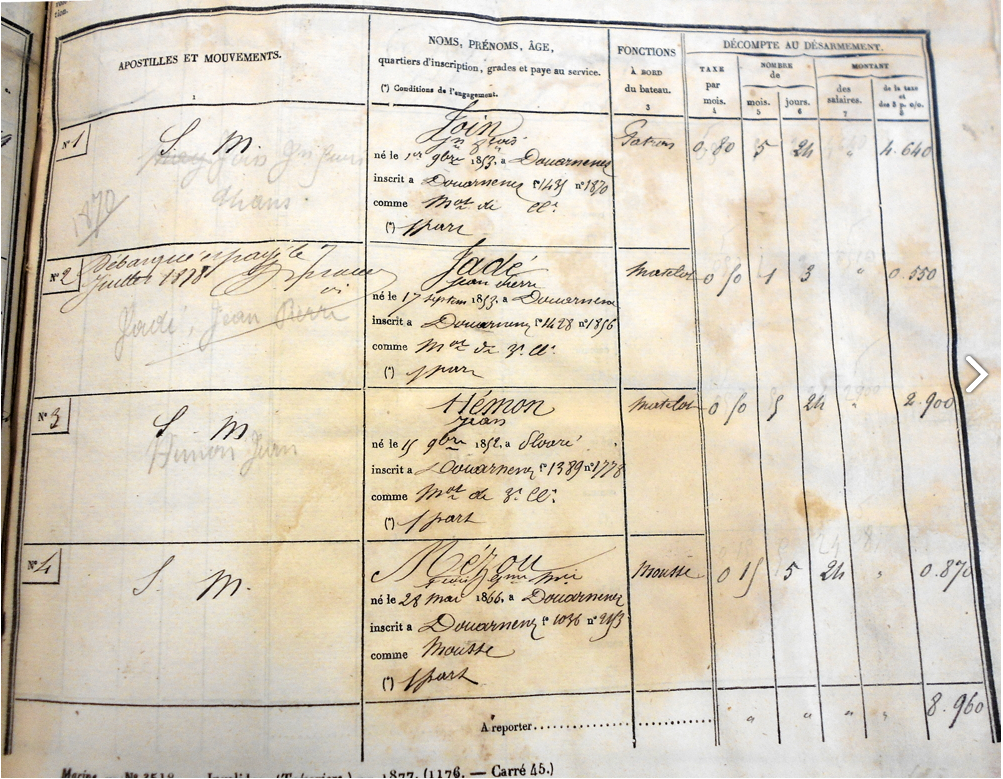 APOSTILLES ET MOUVEMENTS.
1
NOMS, PRÉNOMS, ÂGE,
quartiers d'inscription, grades et paye au service.
(*) Conditions de l'engagement.
FONCTIONS
À BORD
du bateau.
3
DÉCOMPTE AU DÉSARMEMENT.
TAXE
par
mois.
4
NOMBRE
de
mois.
5
jours.
6
MONTANT
des
salaires.
7
de la taxe
et
des 3 p. o/o.
8
N° 1
S. M.
1870
Join
né le 1er 9bre 1853, a Douarnenez
inscrit a Douarnenez f° 1435 n° 1870
comme Mot de Cl.
(*) 1 part
Patron
0 80 5 24 " 4.640
N° 2
Débarqué et payé le 7
Juillet 1878
Jadé, Jean Pierre
Jadé
Jean Pierre
né le 17 septem 1853, a Douarnenez
inscrit a Douarnenez f° 1428 n° 1856
comme Mot de 3e Cl.
(*) 1 part
Matelot
0 50 1 3 " 0.550
N° 3
S. M.
Hémon Jean
Hémon
Jean
né le 15 9bre 1852, a Ploaré
inscrit a Douarnenez f° 1389 n° 1778
comme Mot de 3e Cl.
(*) 1 part
Matelot
0 50 5 24 " 2.900
N° 4
S. M.
né le 28 mai 1866, a Douarnenez
inscrit a Douarnenez f° 1036 n° 2153
comme Mousse
(*) 1 part
Mousse
0 15 5 24 " 0.870
A reporter
" " " " 8.960
1877. (1176. — Carré 45.)